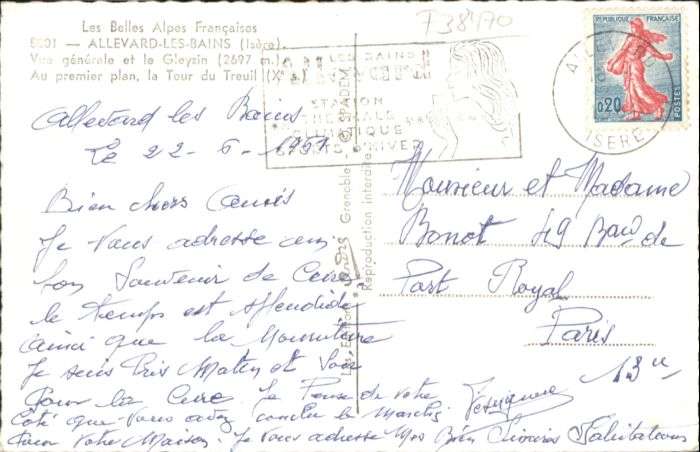 F38170
Les Belles Alpes Françaises
— ALLEVARD-LES-BAINS (Isère).
Vue générale et le Gleyzin (2697 m.)
Au premier plan, la Tour du Treuil (Xe s.)
LES BAINS
STATION
THERMALE
CLIMATIQUE
D'HIVER
REPUBLIQUE FRANÇAISE
0,20
POSTES
ISERE
Grenoble - © SPADEM
Reproduction interdite
Allevard les Bains
Le 22-6-
Bien chers Amis
Je vous adresse un
bon Souvenir de Cure
le temps est splendide
ainsi que la Nourriture
Je suis Pris Matin et Soir
Pour la Cure. Je Pense de votre
Coté que vous avez conclu le Marché
Pour votre Maison. Je vous adresse Mes Bien
Monsieur et Madame
Bonot 49 Bard de
Port Royal
Paris
13e